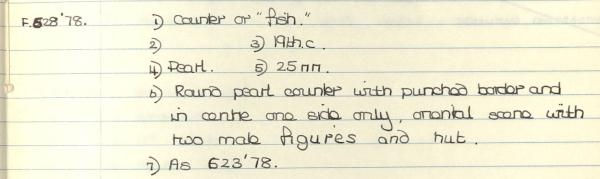 F.628'78. 1) Counter or "fish."
2) 3) 19th.c.
4) Pearl. 5) 25mm.
6) Round pearl counter with punched border and
in centre one side only, oriental scene with
two male figures and hut.
7) As 623'78.